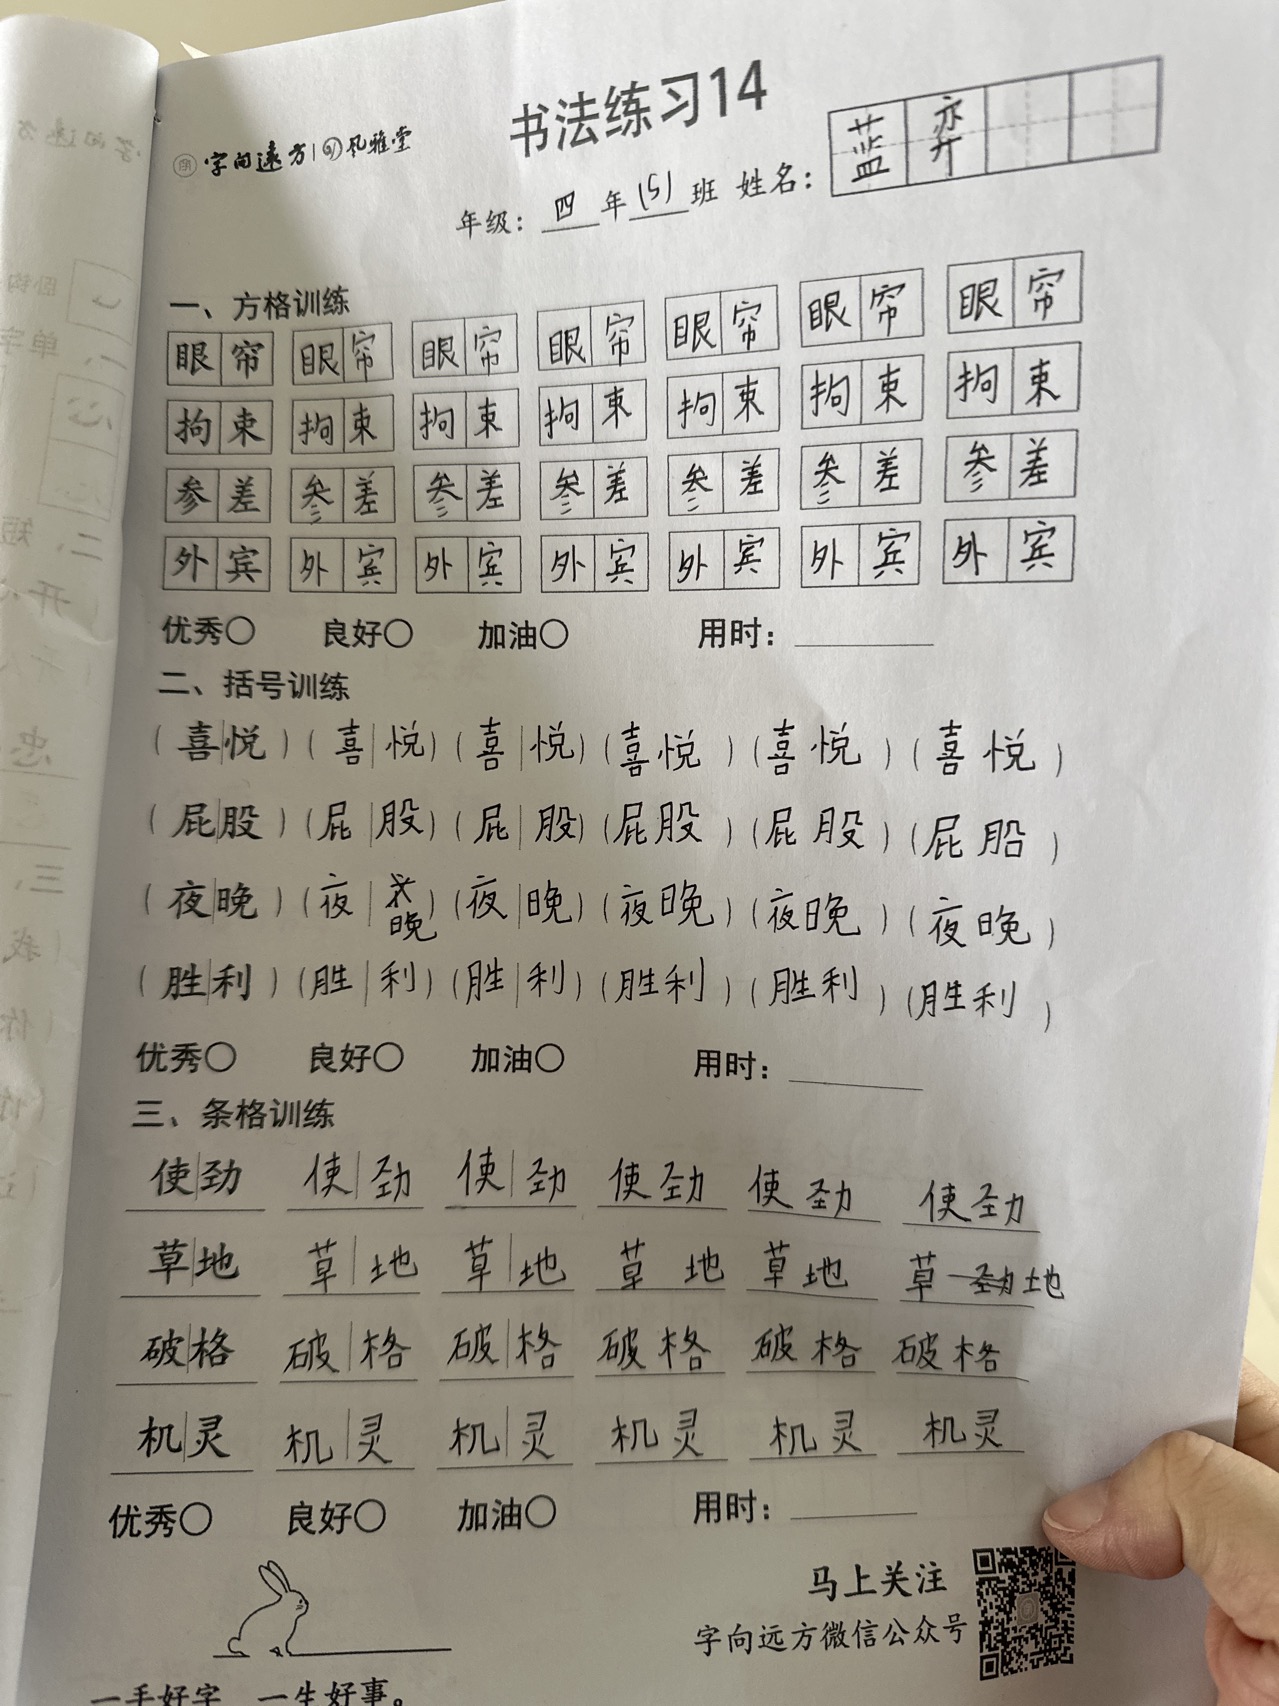 字向远方 风雅堂
书法练习14
年级：四年(5)班 姓名：蓝弈
一、方格训练
眼帘 眼帘 眼帘 眼帘 眼帘 眼帘 眼帘
拘束 拘束 拘束 拘束 拘束 拘束 拘束
参差 参差 参差 参差 参差 参差 参差
外宾 外宾 外宾 外宾 外宾 外宾 外宾
优秀○ 良好○ 加油○ 用时：
二、括号训练
(喜悦) (喜悦) (喜悦) (喜悦) (喜悦) (喜悦)
(屁股) (屁股) (屁股) (屁股) (屁股) (屁股)
(夜晚) (夜晚) (夜晚) (夜晚) (夜晚) (夜晚)
(胜利) (胜利) (胜利) (胜利) (胜利) (胜利)
优秀○ 良好○ 加油○ 用时：
三、条格训练
使劲 使劲 使劲 使劲 使劲 使劲
草地 草地 草地 草地 草地 草地
破格 破格 破格 破格 破格 破格
机灵 机灵 机灵 机灵 机灵 机灵
优秀○ 良好○ 加油○ 用时：
马上关注
字向远方微信公众号
一手好字 一生好事。